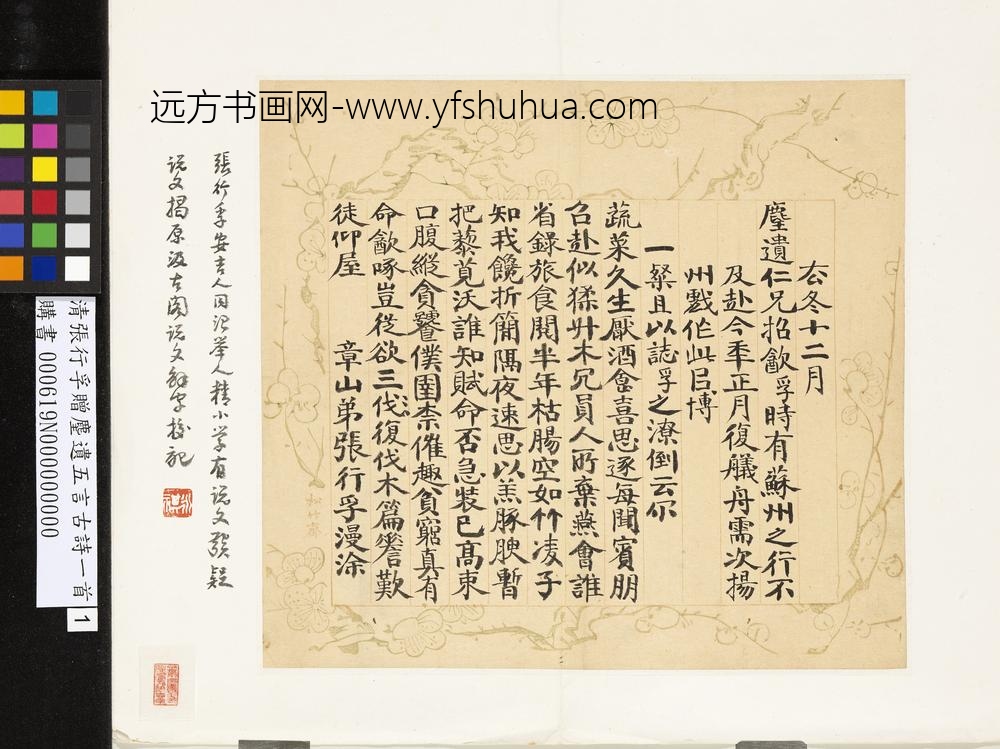 远方书画网-www.yfshuhua.com
厺冬十二月
塵遺仁兄招歙孚時有蘇州之行不
及赴今秊正月復艤舟需次揚
州戲作此㠯博
一粲且以誌孚之潦倒云尒
蔬菜久生厭酒食喜思逐每聞賓朋
召赴似猱升木冗員人所棄燕會誰
省錄旅食閱半年枯腸空如竹凌子
知我饞折簡隔夜速思以羔豚腴暫
把藜莧沃誰知賦命否急裝已高束
口腹縱貪饕僕圉柰催趣貧窮真有
命歙啄豈從欲三復伐木篇嘗歎
徒仰屋 章山弟張行孚漫涂
松竹齋
張行孚安吉人同治舉人精小學有說文發疑
說文揭原汲古閣說文解字校記
清張行孚贈塵遺五言古詩一首
購書 000619N000000000
1